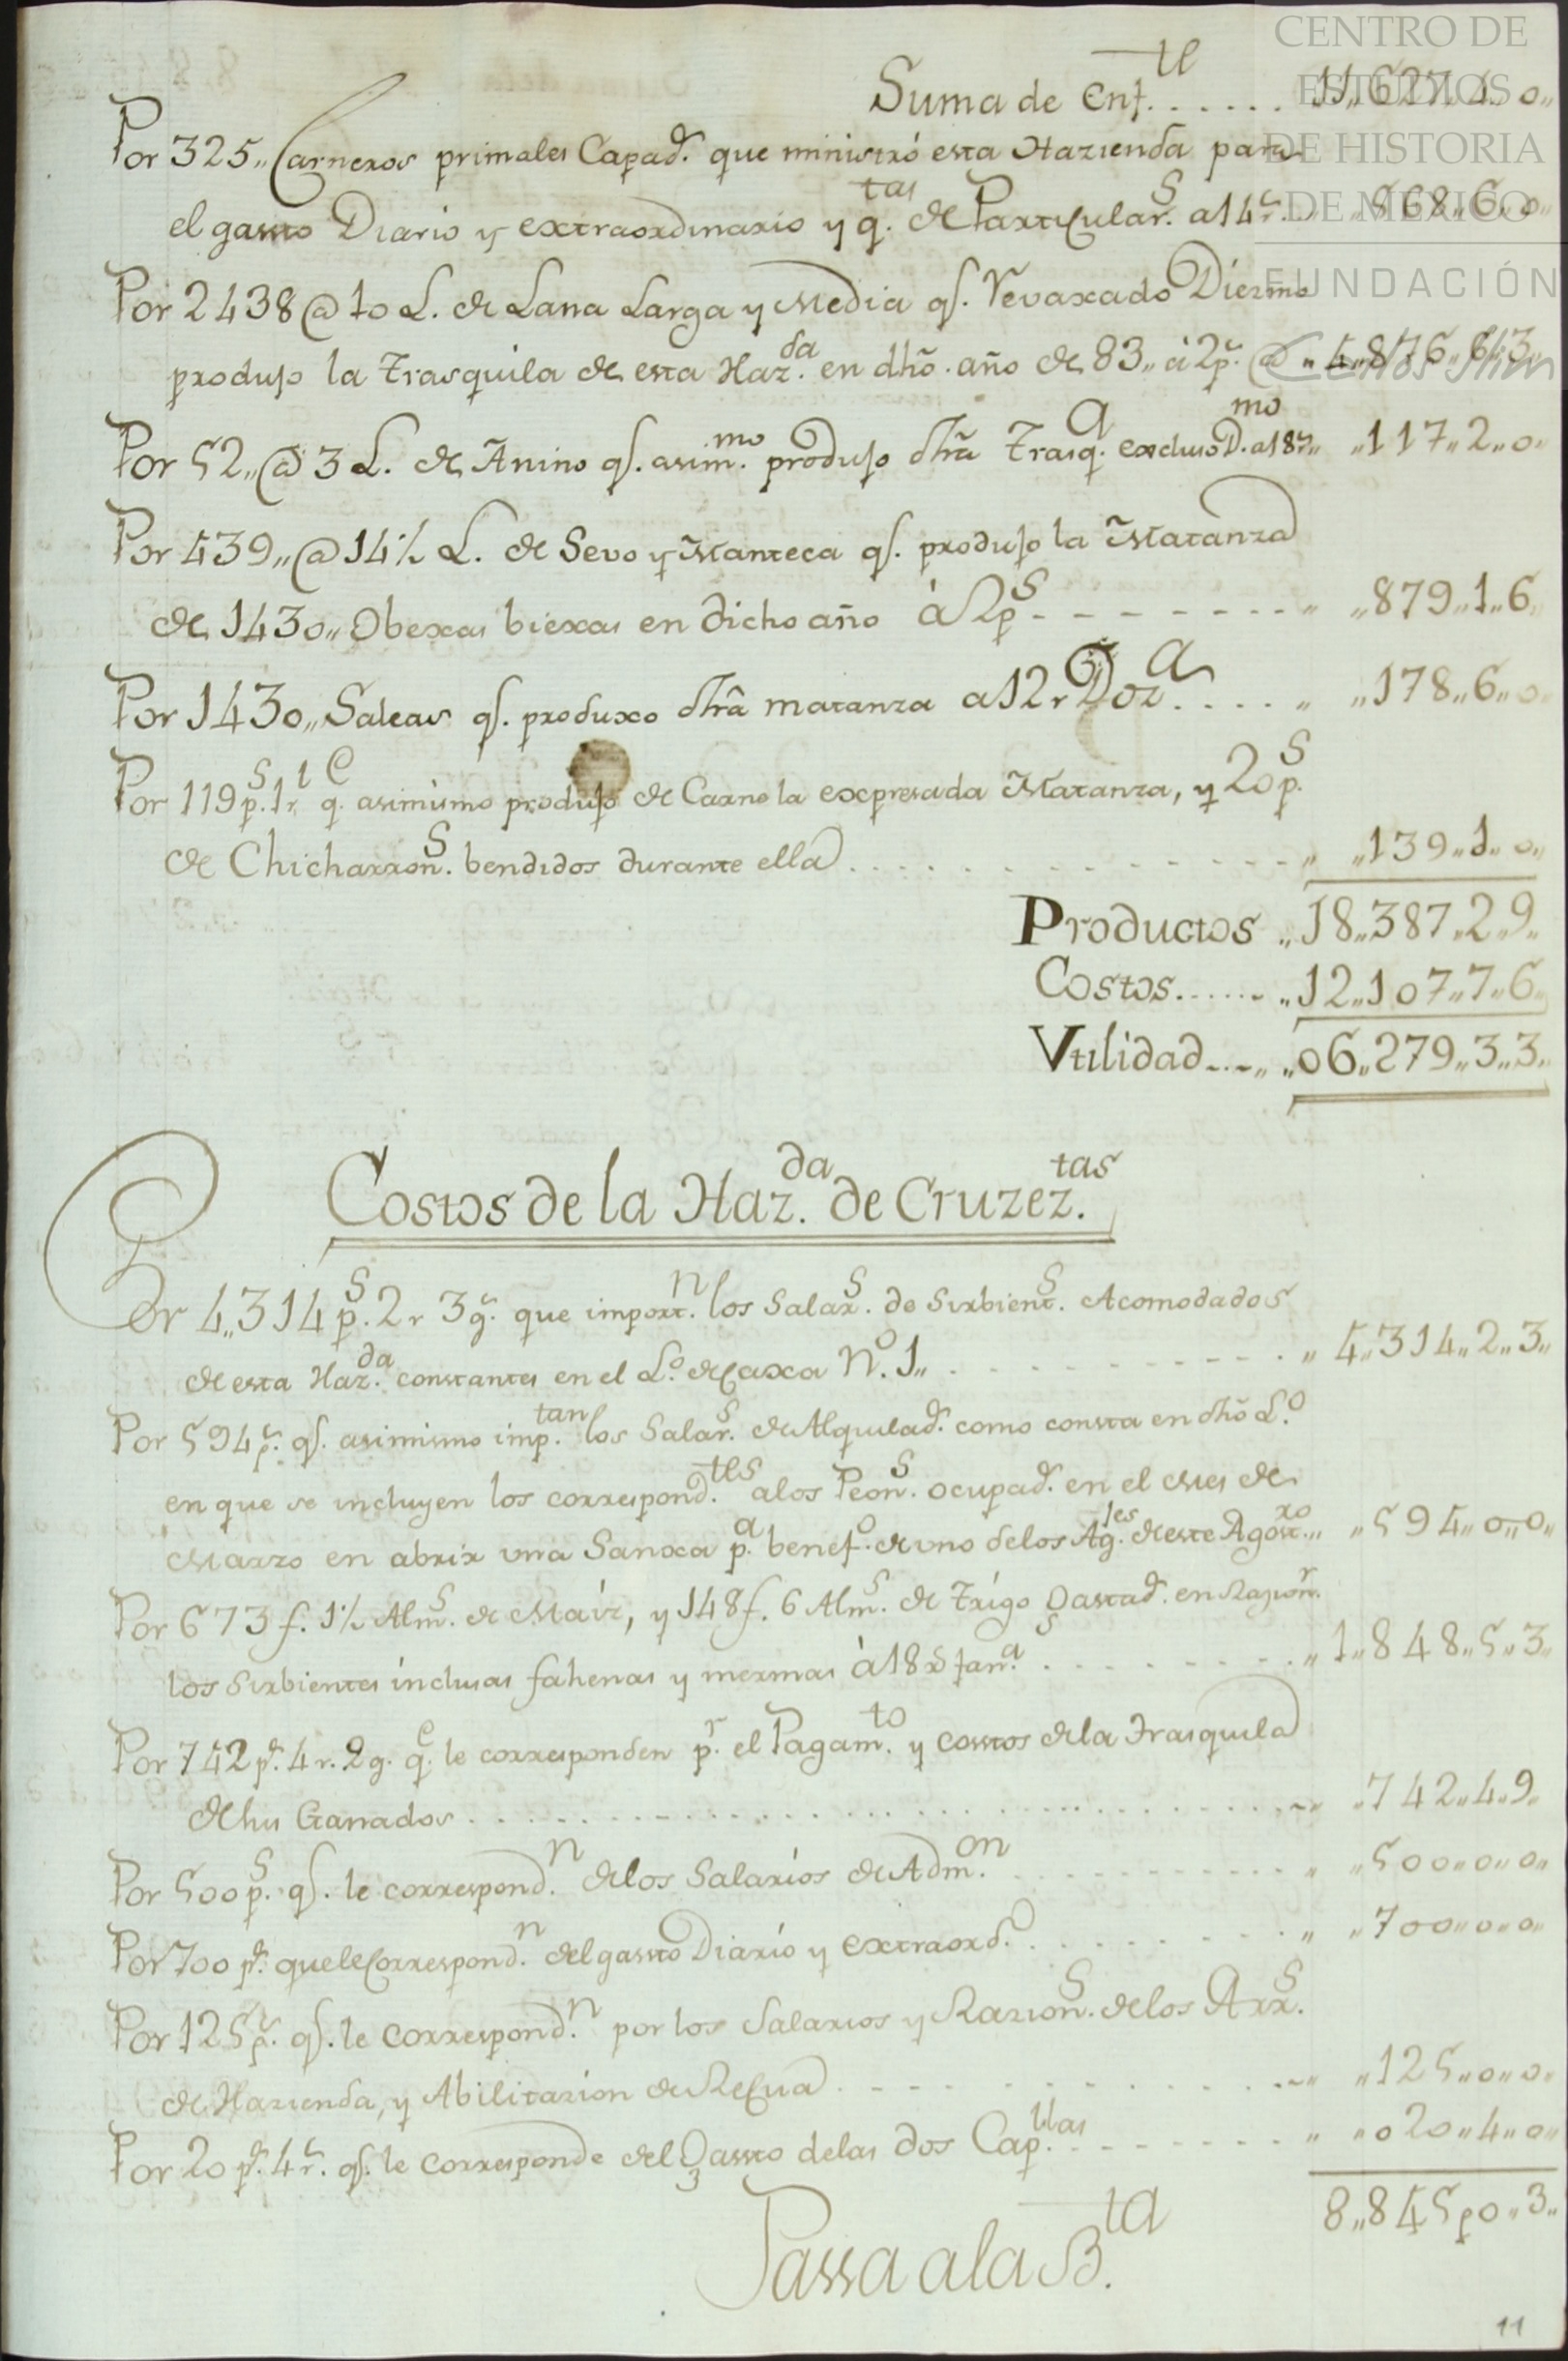 CENTRO DE
ESTUDIOS
DE HISTORIA
DE MEXICO
FUNDACIÓN
Carlos Slim
Suma de Enf.te ...... 11,,627,,4,,0,,
Por 325,, Carneros primales Capad.s que ministró esta Hazienda para
el gasto Diario y extraordinario y q.tas de Particular.s a 14 r.... ,,568,,6,,0,,
Por 2438 @ 10 L. de Lana Larga y Media q.e revaxado Diezmo
produjo la trasquila de esta Haz.da en dho. año de 83,, à 2p.s @ ,,4,,876,,6,,3,,
Por 52,, @ 3 L. de Anino q.e asim.mo produjo dha Trasq.a excluso D.mo a 18 r,, ,,117,,2,,0,,
Por 439,, @ 14½ L. de Sevo y Manteca q.e produjo la Matanza
de 1430,, Obexas biexas en dicho año à 2p.s - - - - - - - ,, ,,879,,1,,6,,
Por 1430,, Saleas q.e produxo dha matanza a 12 r Doz.a .... ,, ,,178,,6,,0,,
Por 119 p.s 1 r.l q.e asimismo produjo de Carne la expresada Matanza, y 20 p.s
de Chicharron.s bendidos durante ella ............ ,, ,,139,,1,,0,,
Productos ,,18,,387,,2,,9,,
Costos...... ,,12,,107,,7,,6,,
Vtilidad..... ,,06,,279,,3,,3,,
Costos de la Haz.da de Cruzez.tas
Por 4,,314 p.s 2 r 3 g.s que import.n los Salar.s de Sirbient.s Acomodados
de esta Haz.da constantes en el L.o de Caxa N.o 1,, ......... ,, 4,,314,,2,,3,,
Por 594 p.s q.e asimismo imp.tan los Salar.s de Alquilad.s como consta en dho L.o
en que se incluyen los correspond.tes a los Peon.s ocupad.s en el Mes de
Marzo en abrir una Sanxa p.a benef.o de uno de los Ag.les de este Agost.xo... ,,594,,0,,0,,
Por 673 f. 1½ Alm.s de Maiz, y 148 f. 6 Alm.s de Trigo gastad.s en Razion.s
los Sirbientes inclusas fahenas y mermas à 18 r.s fan.a ......... ,, 1,,848,,5,,3,,
Por 742 p.s 4 r. 9 g. q.e le corresponden p.r el Pagam.to y costos de la Trasquila
de su Ganados ................. ,,742,,4,,9,,
Por 500 p.s q.e le correspond.n de los Salarios de Adm.on ......... ,, ,,500,,0,,0,,
Por 700 p.s que le Correspond.n del gasto Diario y extraord.o ........ ,, ,,700,,0,,0,,
Por 125 p.s q.e le correspond.n por los Salarios y Razion.s de los Arr.s
de Hazienda, y Abilitazion de Recua ............ ,, ,,125,,0,,0,,
Por 20 p.s 4 r.s q.e le corresponde del Gasto de las dos Cap.llas ........ ,, ,,020,,4,,0,,
8,,845 p 0,,3,,
Passa a la B.ta
11